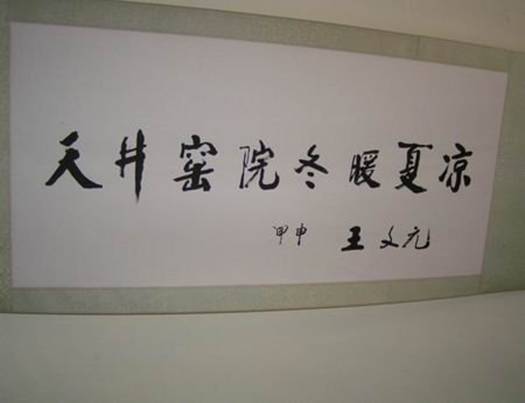 天井窑院冬暖夏凉
甲申 王文元